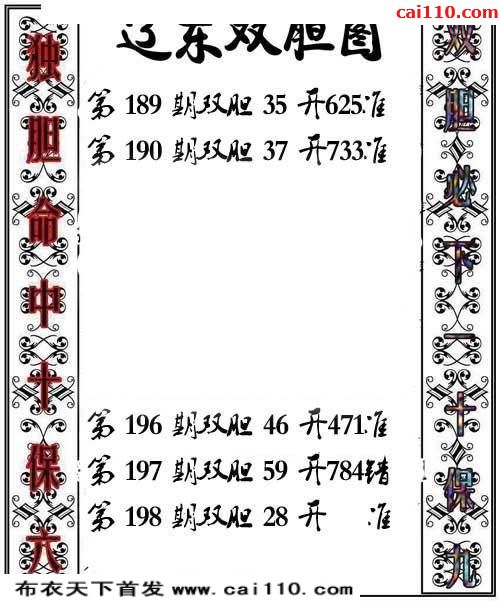 cai110.com
辽东双胆图
独胆命中十保六
第 189 期双胆 35 开625准
第 190 期双胆 37 开733准
第 196 期双胆 46 开471准
第 197 期双胆 59 开784错
第 198 期双胆 28 开 准
双胆必下一十保九
布衣天下首发 www.cai110.com